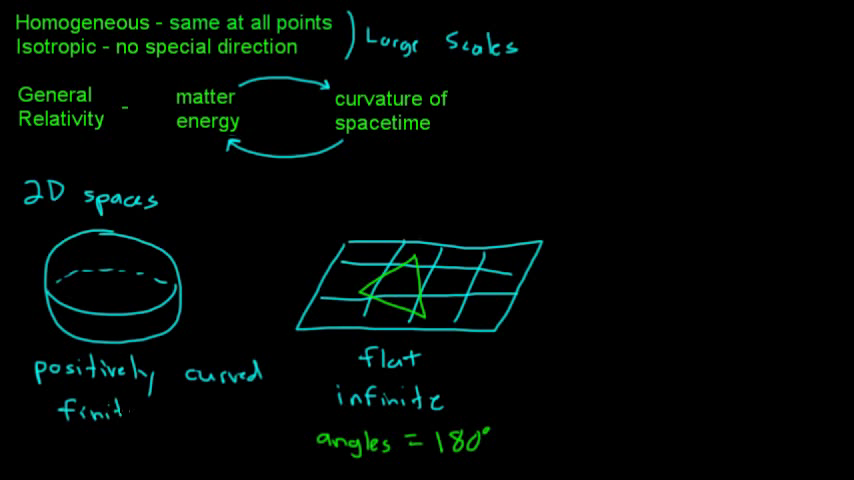 Homogeneous - same at all points
Isotropic - no special direction
Large Scales
General
Relativity -
matter
energy
curvature of
spacetime
2D spaces
positively curved
finit
flat
infinite
angles = 180°